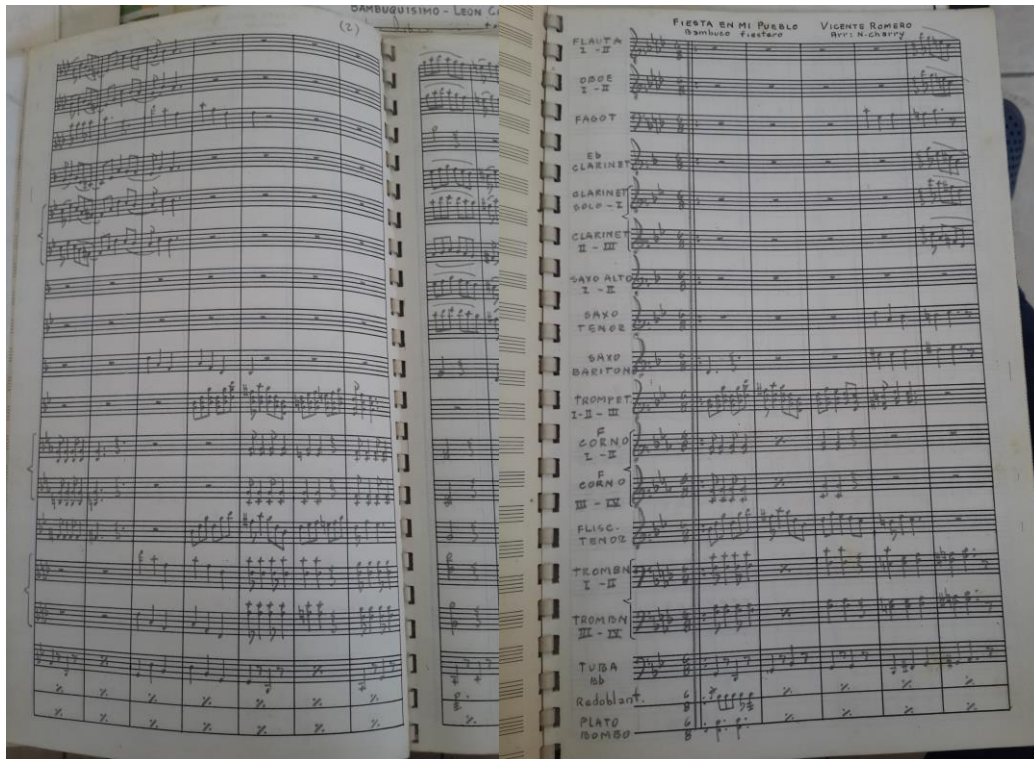 BAMBUQUISIMO - LEON
(2)
FIESTA EN MI PUEBLO
VICENTE ROMERO
Bambuco fiestero
Arr: N. Charry
FLAUTA
I - II
OBOE
I - II
FAGOT
Eb
CLARINET
CLARINET
SOLO - I
CLARINET
II - III
SAXO ALTO
I - II
SAXO
TENOR
SAXO
BARITON
TROMPET
I - II - III
F
CORNO
I - II
F
CORNO
III - IV
FLISC.
TENOR
TROMBN
I - II
TROMBN
III - IV
TUBA
Bb
Redoblant.
PLATO
BOMBO